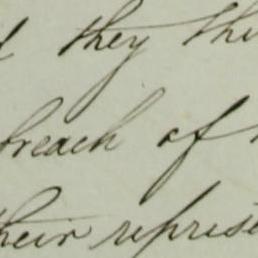 they thi
breach of
their represe